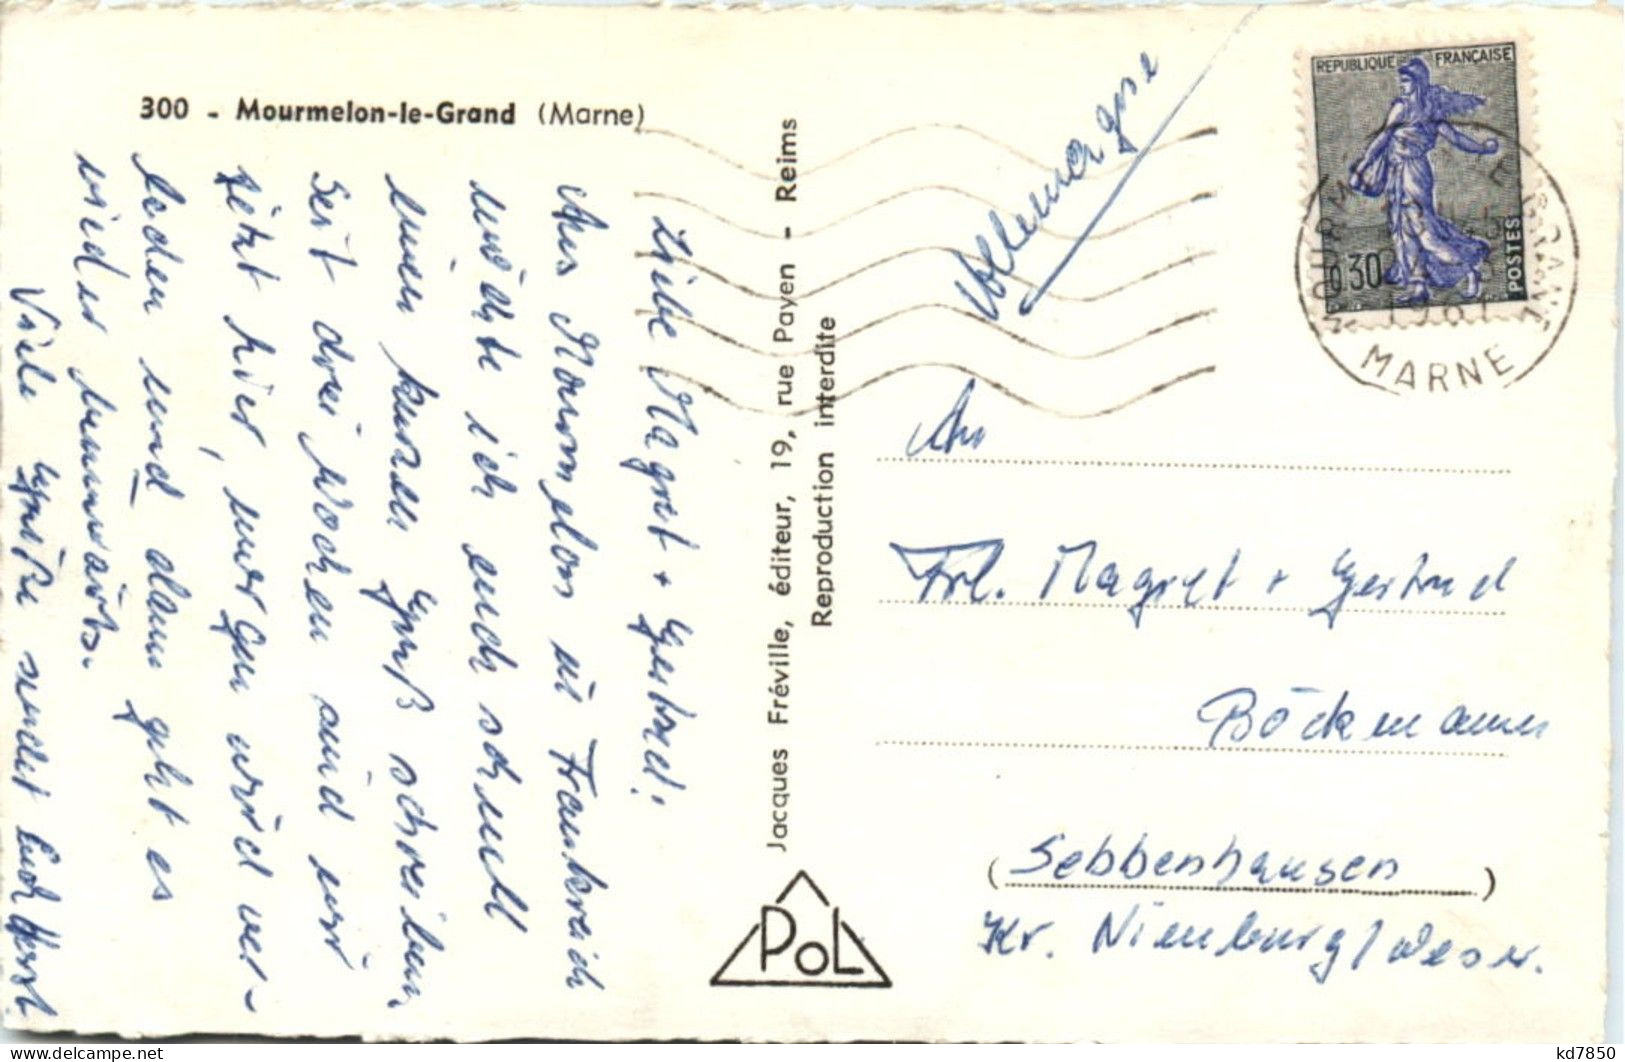 300 - Mourmelon-le-Grand (Marne)
Liebe Magret + Gertrud!
Aus Mourmelon in Frankreich
möchte ich euch schnell
einen kurzen Gruß schreiben,
Seit drei Wochen sind wir
jetzt hier, morgen wird ver-
laden und dann geht es
wieder heimwärts.
Viele Grüße sendet Euch Horst
Jacques Fréville, éditeur, 19, rue Payen - Reims
Reproduction interdite
PoL
Allemagne
REPUBLIQUE FRANÇAISE
0,30
POSTES
MOURMELON LE GRAND
1961
MARNE
An
Frl. Magret + Gertrud
Böckmann
(Sebbenhausen)
Kr. Nienburg/Weser.
delcampe.net
kd7850